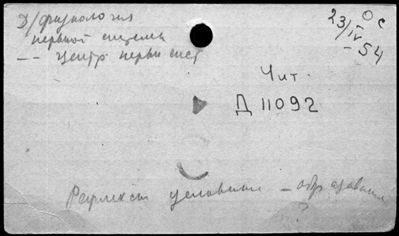 З/физиология
нервной системы
-- центр нервн сист
23/IV - 54
ОС
Чит.
Д 11092
Рефлексы условные - образование
?